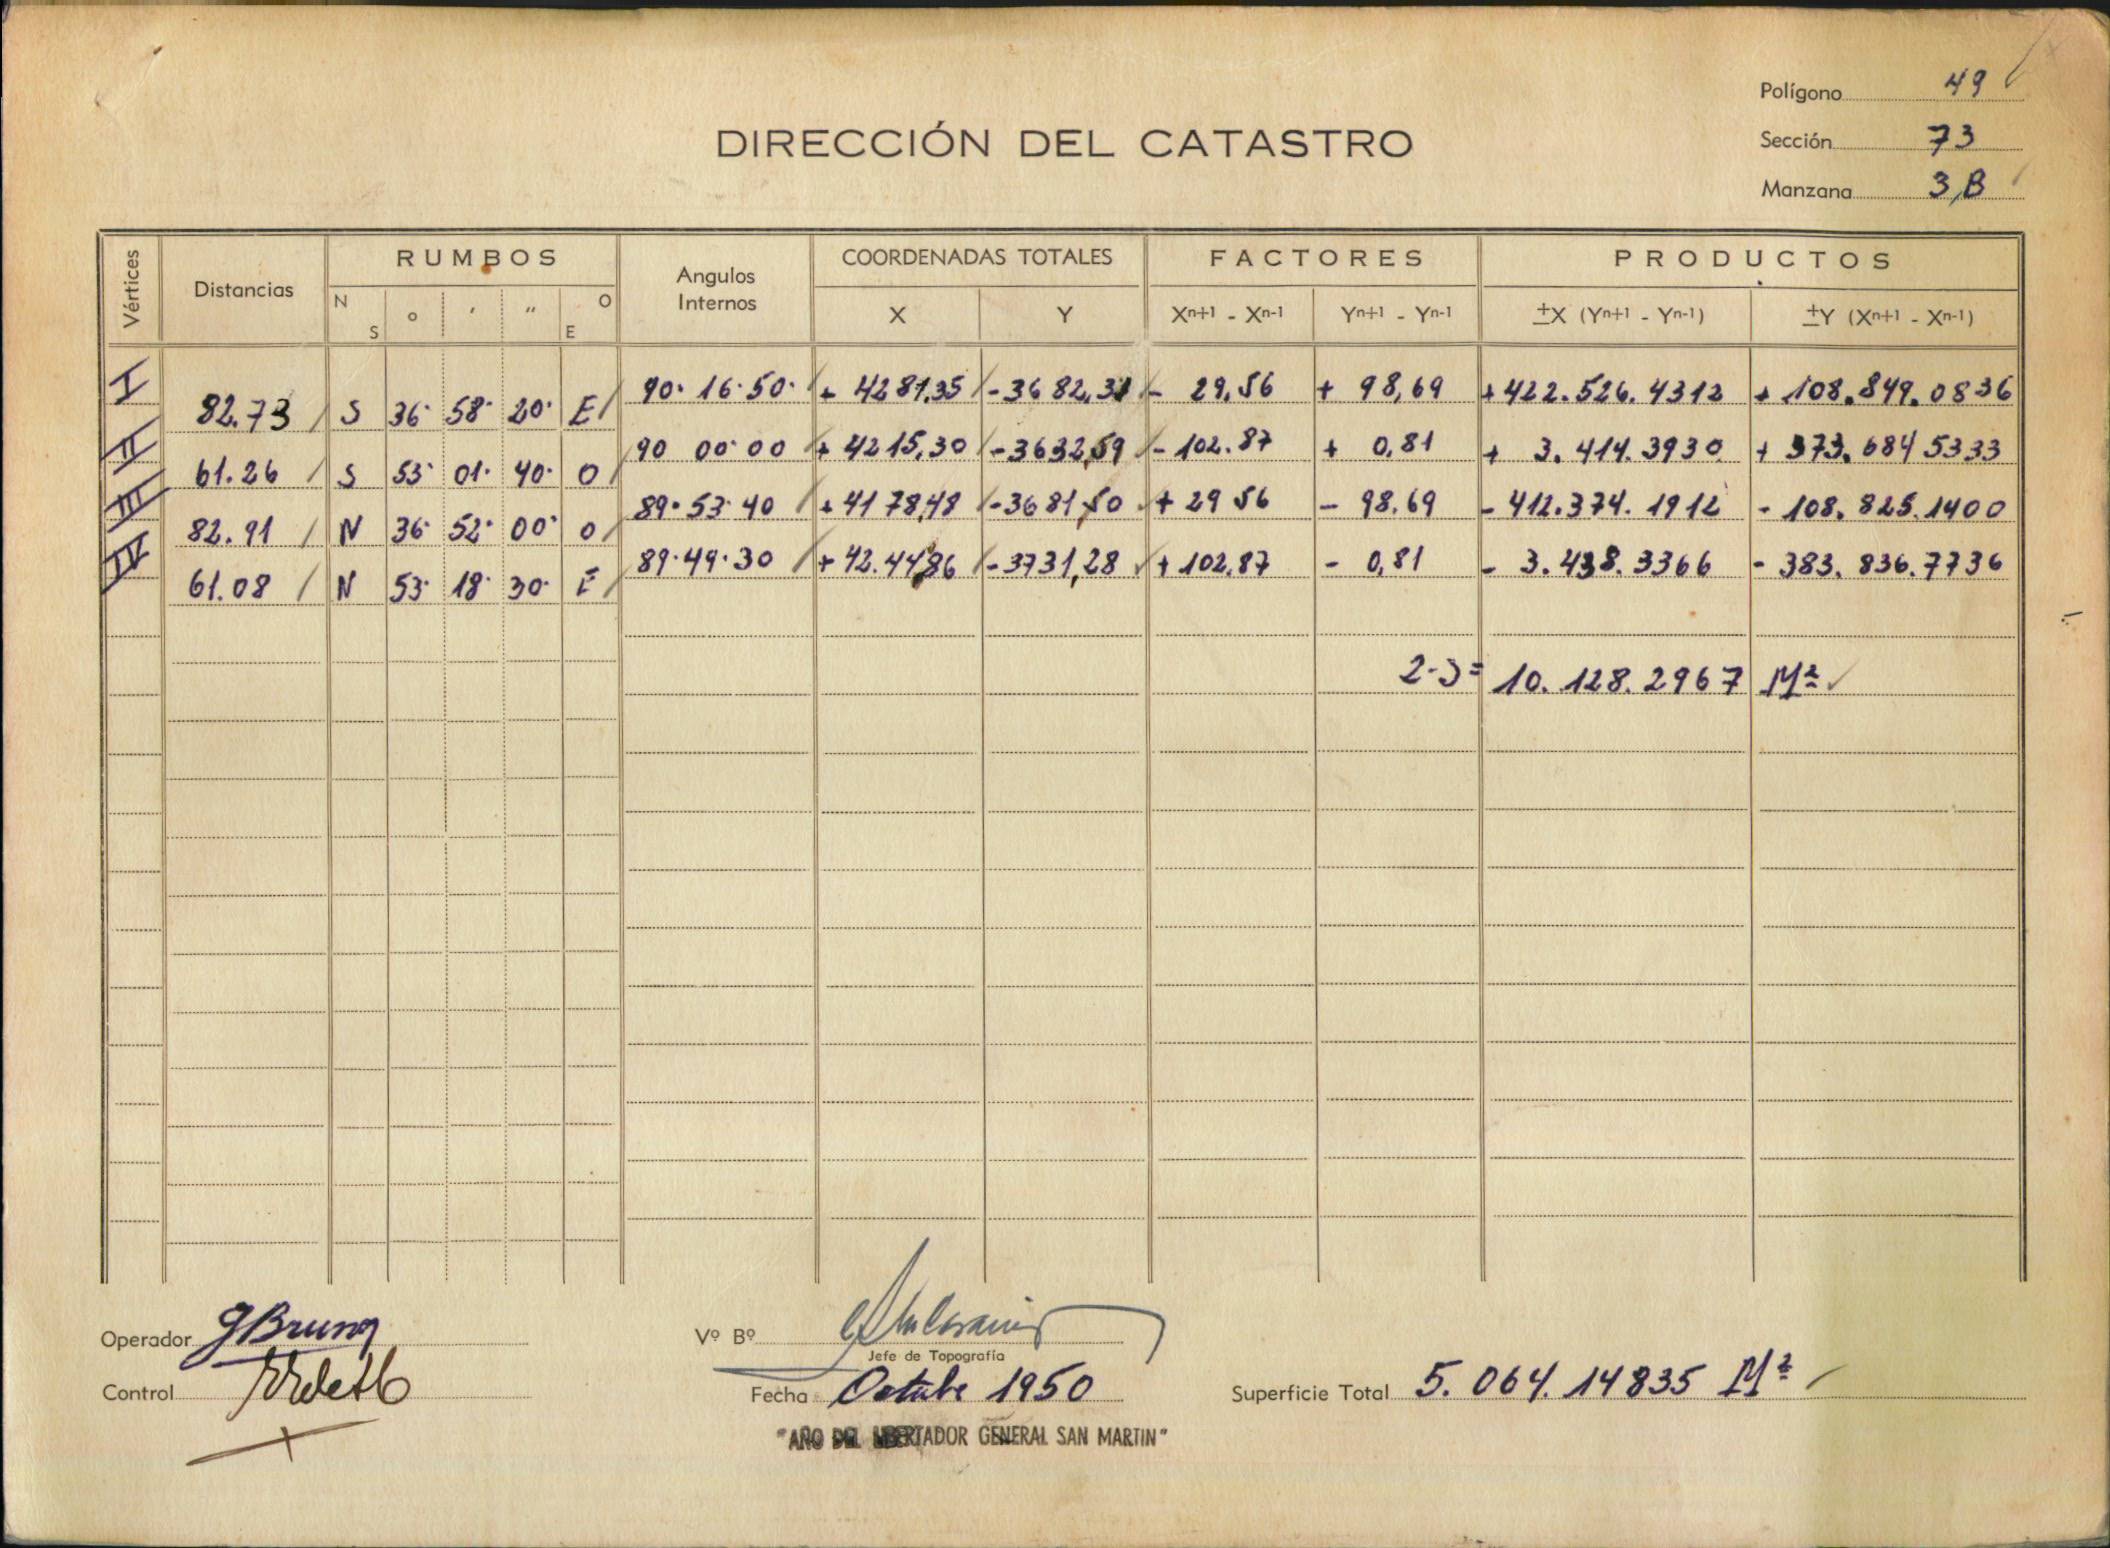 Polígono 49
Sección 73
Manzana 3,B
DIRECCIÓN DEL CATASTRO
Vértices Distancias RUMBOS Angulos Internos COORDENADAS TOTALES FACTORES PRODUCTOS
N S o ' " O E X Y Xn+1 - Xn-1 Yn+1 - Yn-1 ±X (Yn+1 - Yn-1) ±Y (Xn+1 - Xn-1)
I 90· 16· 50· + 4281,35 -3682,31 - 29,56 + 98,69 +422.526.4312 + 108.849.0836
82.73 S 36· 58· 20· E
II 90 00· 00 + 4215,30 -3632,59 - 102.87 + 0,81 + 3.414.3930 + 373.684 5333
61.26 S 53· 01· 40· O
III 89· 53· 40 + 4178,48 -3681,50 + 29 56 - 98.69 - 412.374.1912 - 108.825.1400
82.91 N 36· 52· 00· O
IV 89· 49· 30 + 42.44,86 -3731,28 + 102,87 - 0,81 - 3.438.3366 - 383.836.7736
61.08 N 53· 18· 30· E
2-S= 10.128.2967 M²
Operador GBruno
Vº Bº
Jefe de Topografía
Control
Fecha Octubre 1950
Superficie Total 5.064.14835 M²
"AÑO DEL LIBERTADOR GENERAL SAN MARTIN"